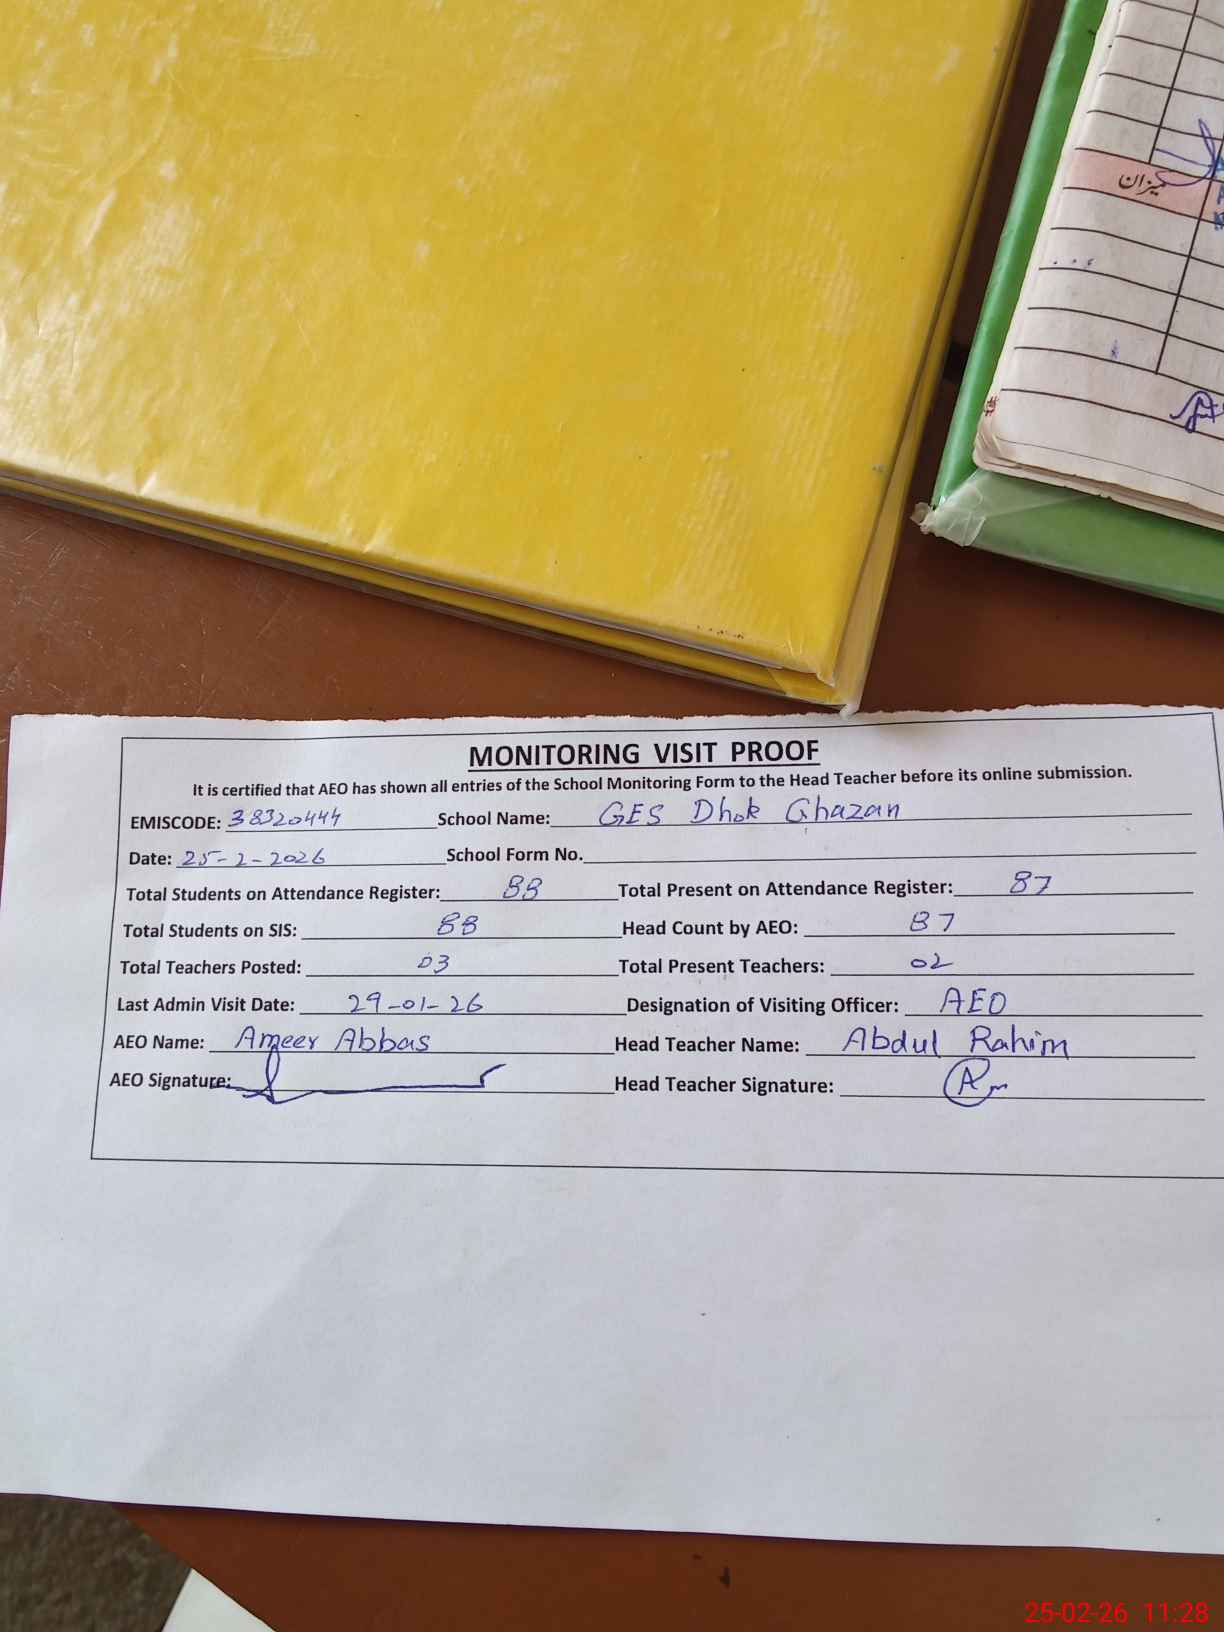 میزان
MONITORING VISIT PROOF
It is certified that AEO has shown all entries of the School Monitoring Form to the Head Teacher before its online submission.
EMISCODE: 38320444 School Name: GES Dhok Ghazan
Date: 25-2-2026 School Form No.
Total Students on Attendance Register: 88 Total Present on Attendance Register: 87
Total Students on SIS: 88 Head Count by AEO: 87
Total Teachers Posted: 03 Total Present Teachers: 02
Last Admin Visit Date: 29-01-26 Designation of Visiting Officer: AEO
AEO Name: Ameer Abbas Head Teacher Name: Abdul Rahim
AEO Signature: Head Teacher Signature:
25-02-26 11:28